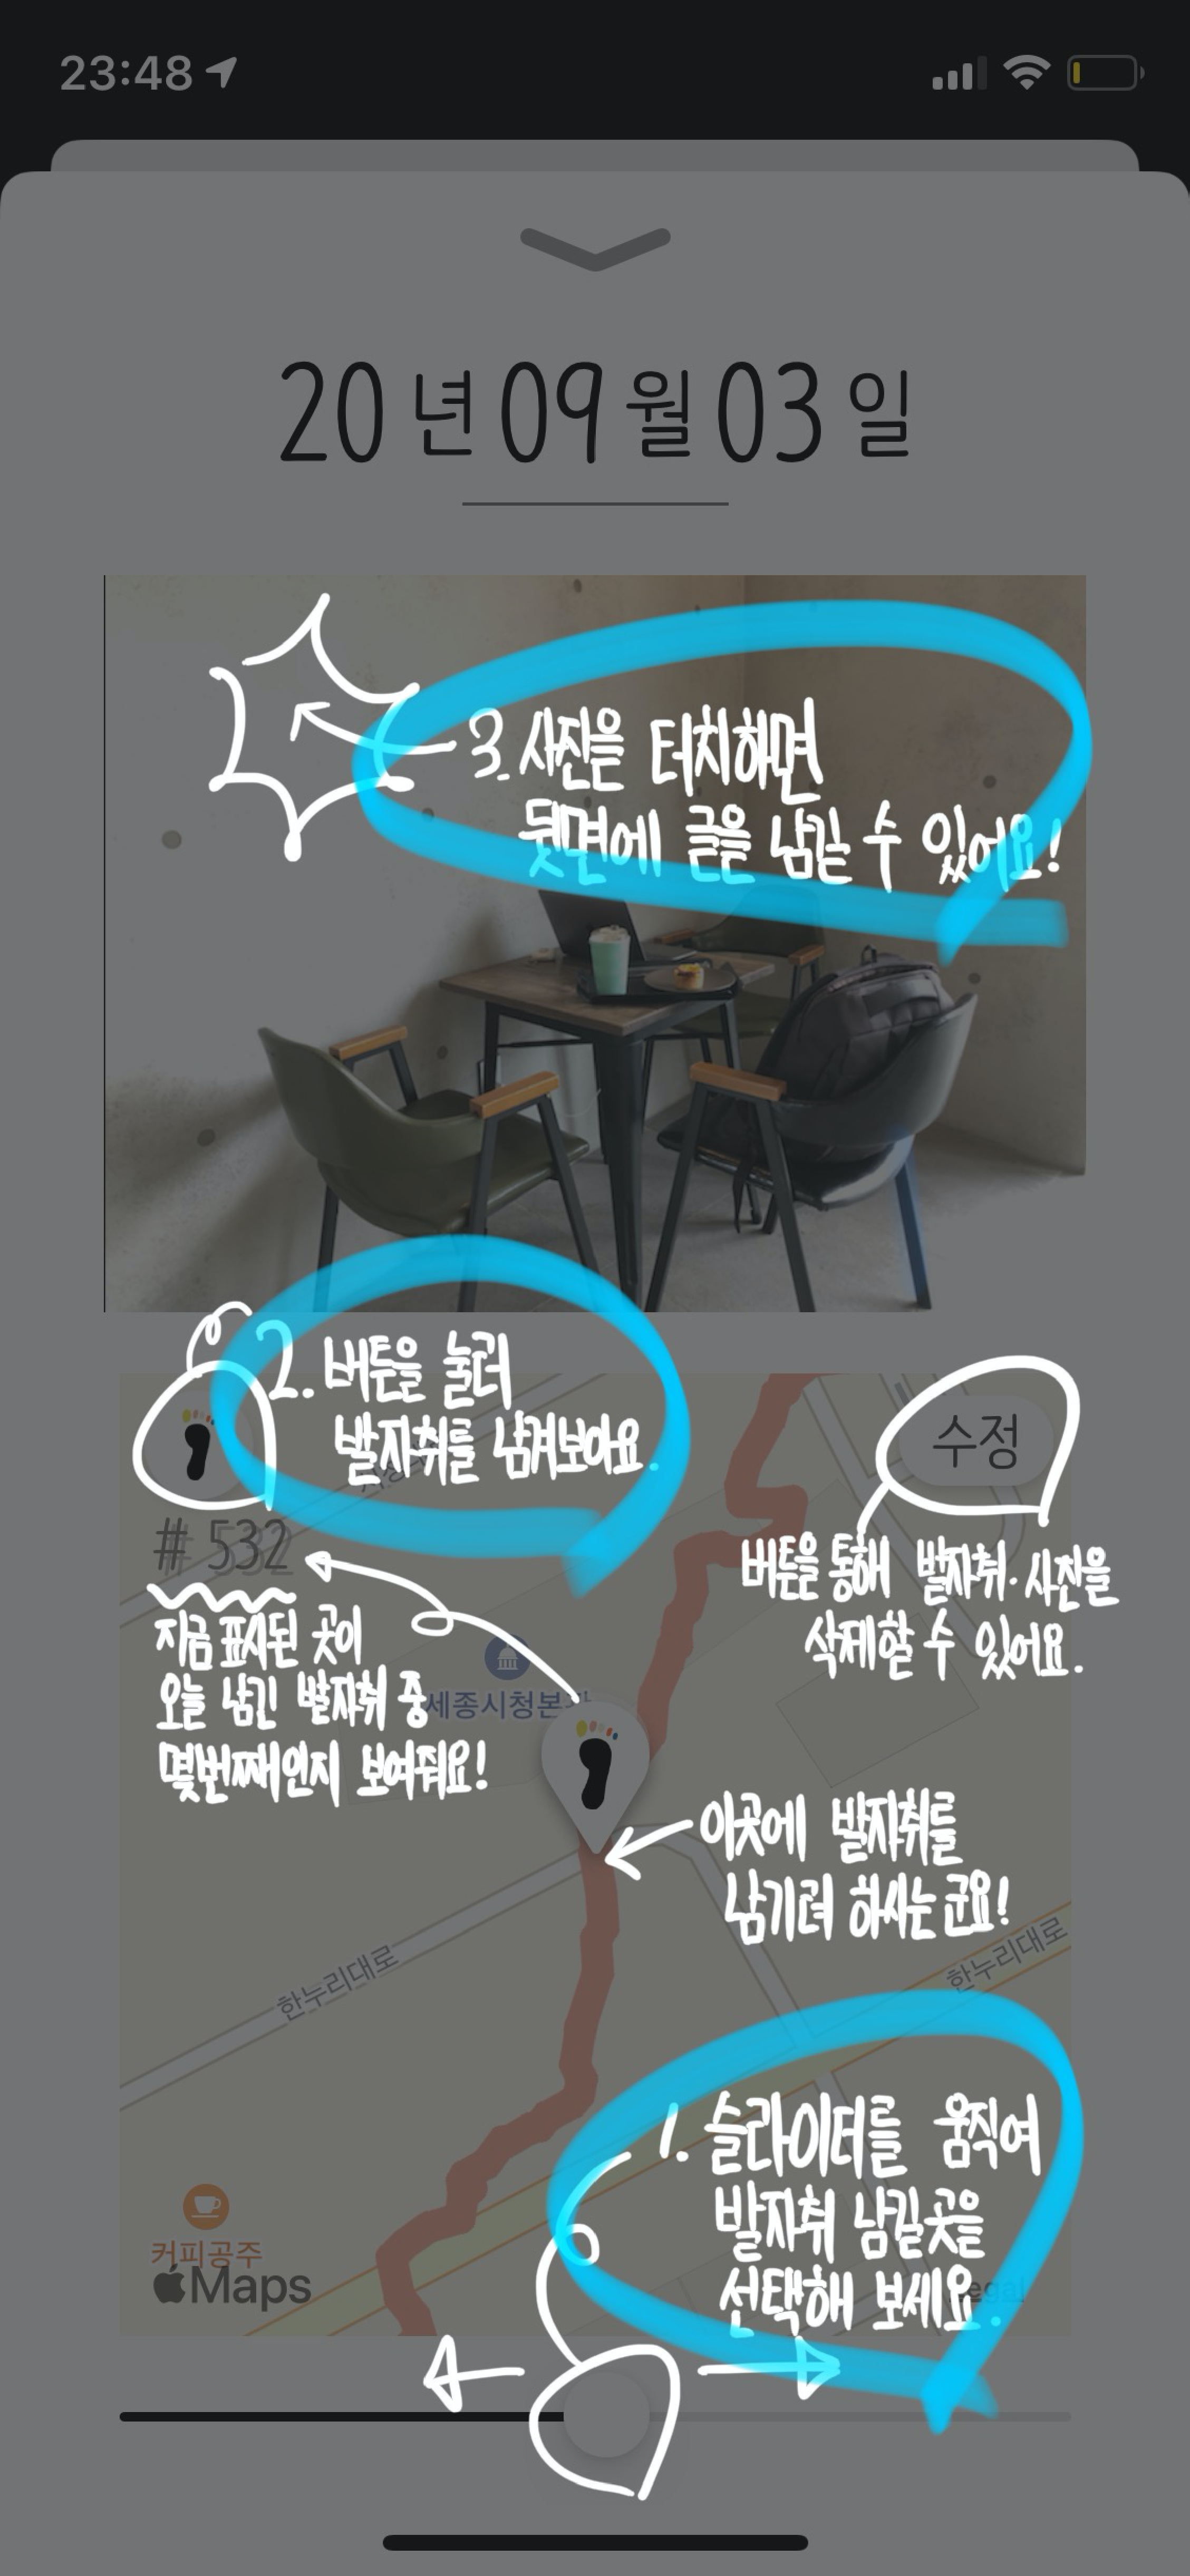 23:48
20 년 09 월 03 일
3. 사진을 터치하면
뒷면에 글을 남길 수 있어요!
2. 버튼을 눌러
발자취를 남겨보아요.
수정
# 532
버튼을 통해 발자취·사진을
삭제할 수 있어요.
지금 표시된 곳이
오늘 남긴 발자취 중
몇번째인지 보여줘요!
세종시청본
이곳에 발자취를
남기려 하시는군요!
한누리대로
한누리대로
1. 슬라이더를 움직여
발자취 남길곳을
선택해 보세요.
커피공주
Maps
Legal